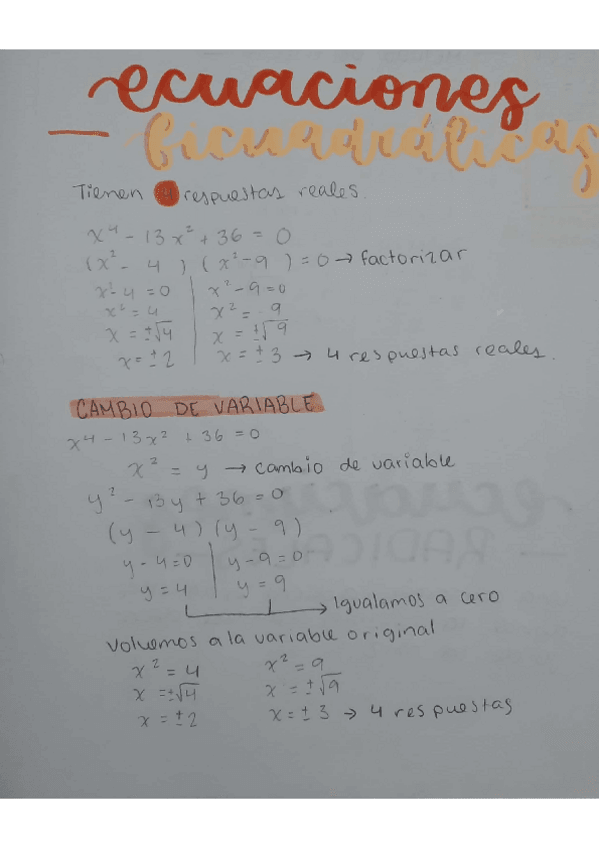 ecuaciones
— bicuadráticas
Tienen 4 respuestas reales.
x⁴ - 13x² + 36 = 0
(x² - 4 ) (x² - 9 ) = 0 → factorizar
x² - 4 = 0 | x² - 9 = 0
x² = 4 | x² = 9
x = ±√4 | x = ±√9
x = ± 2 | x = ± 3 → 4 respuestas reales.
CAMBIO DE VARIABLE
x⁴ - 13x² + 36 = 0
x² = y → cambio de variable
y² - 13y + 36 = 0
(y - 4) (y - 9)
y - 4 = 0 | y - 9 = 0
y = 4 | y = 9
→ Igualamos a cero
Volvemos a la variable original
x² = 4 x² = 9
x = ±√4 x = ±√9
x = ± 2 x = ± 3 → 4 respuestas